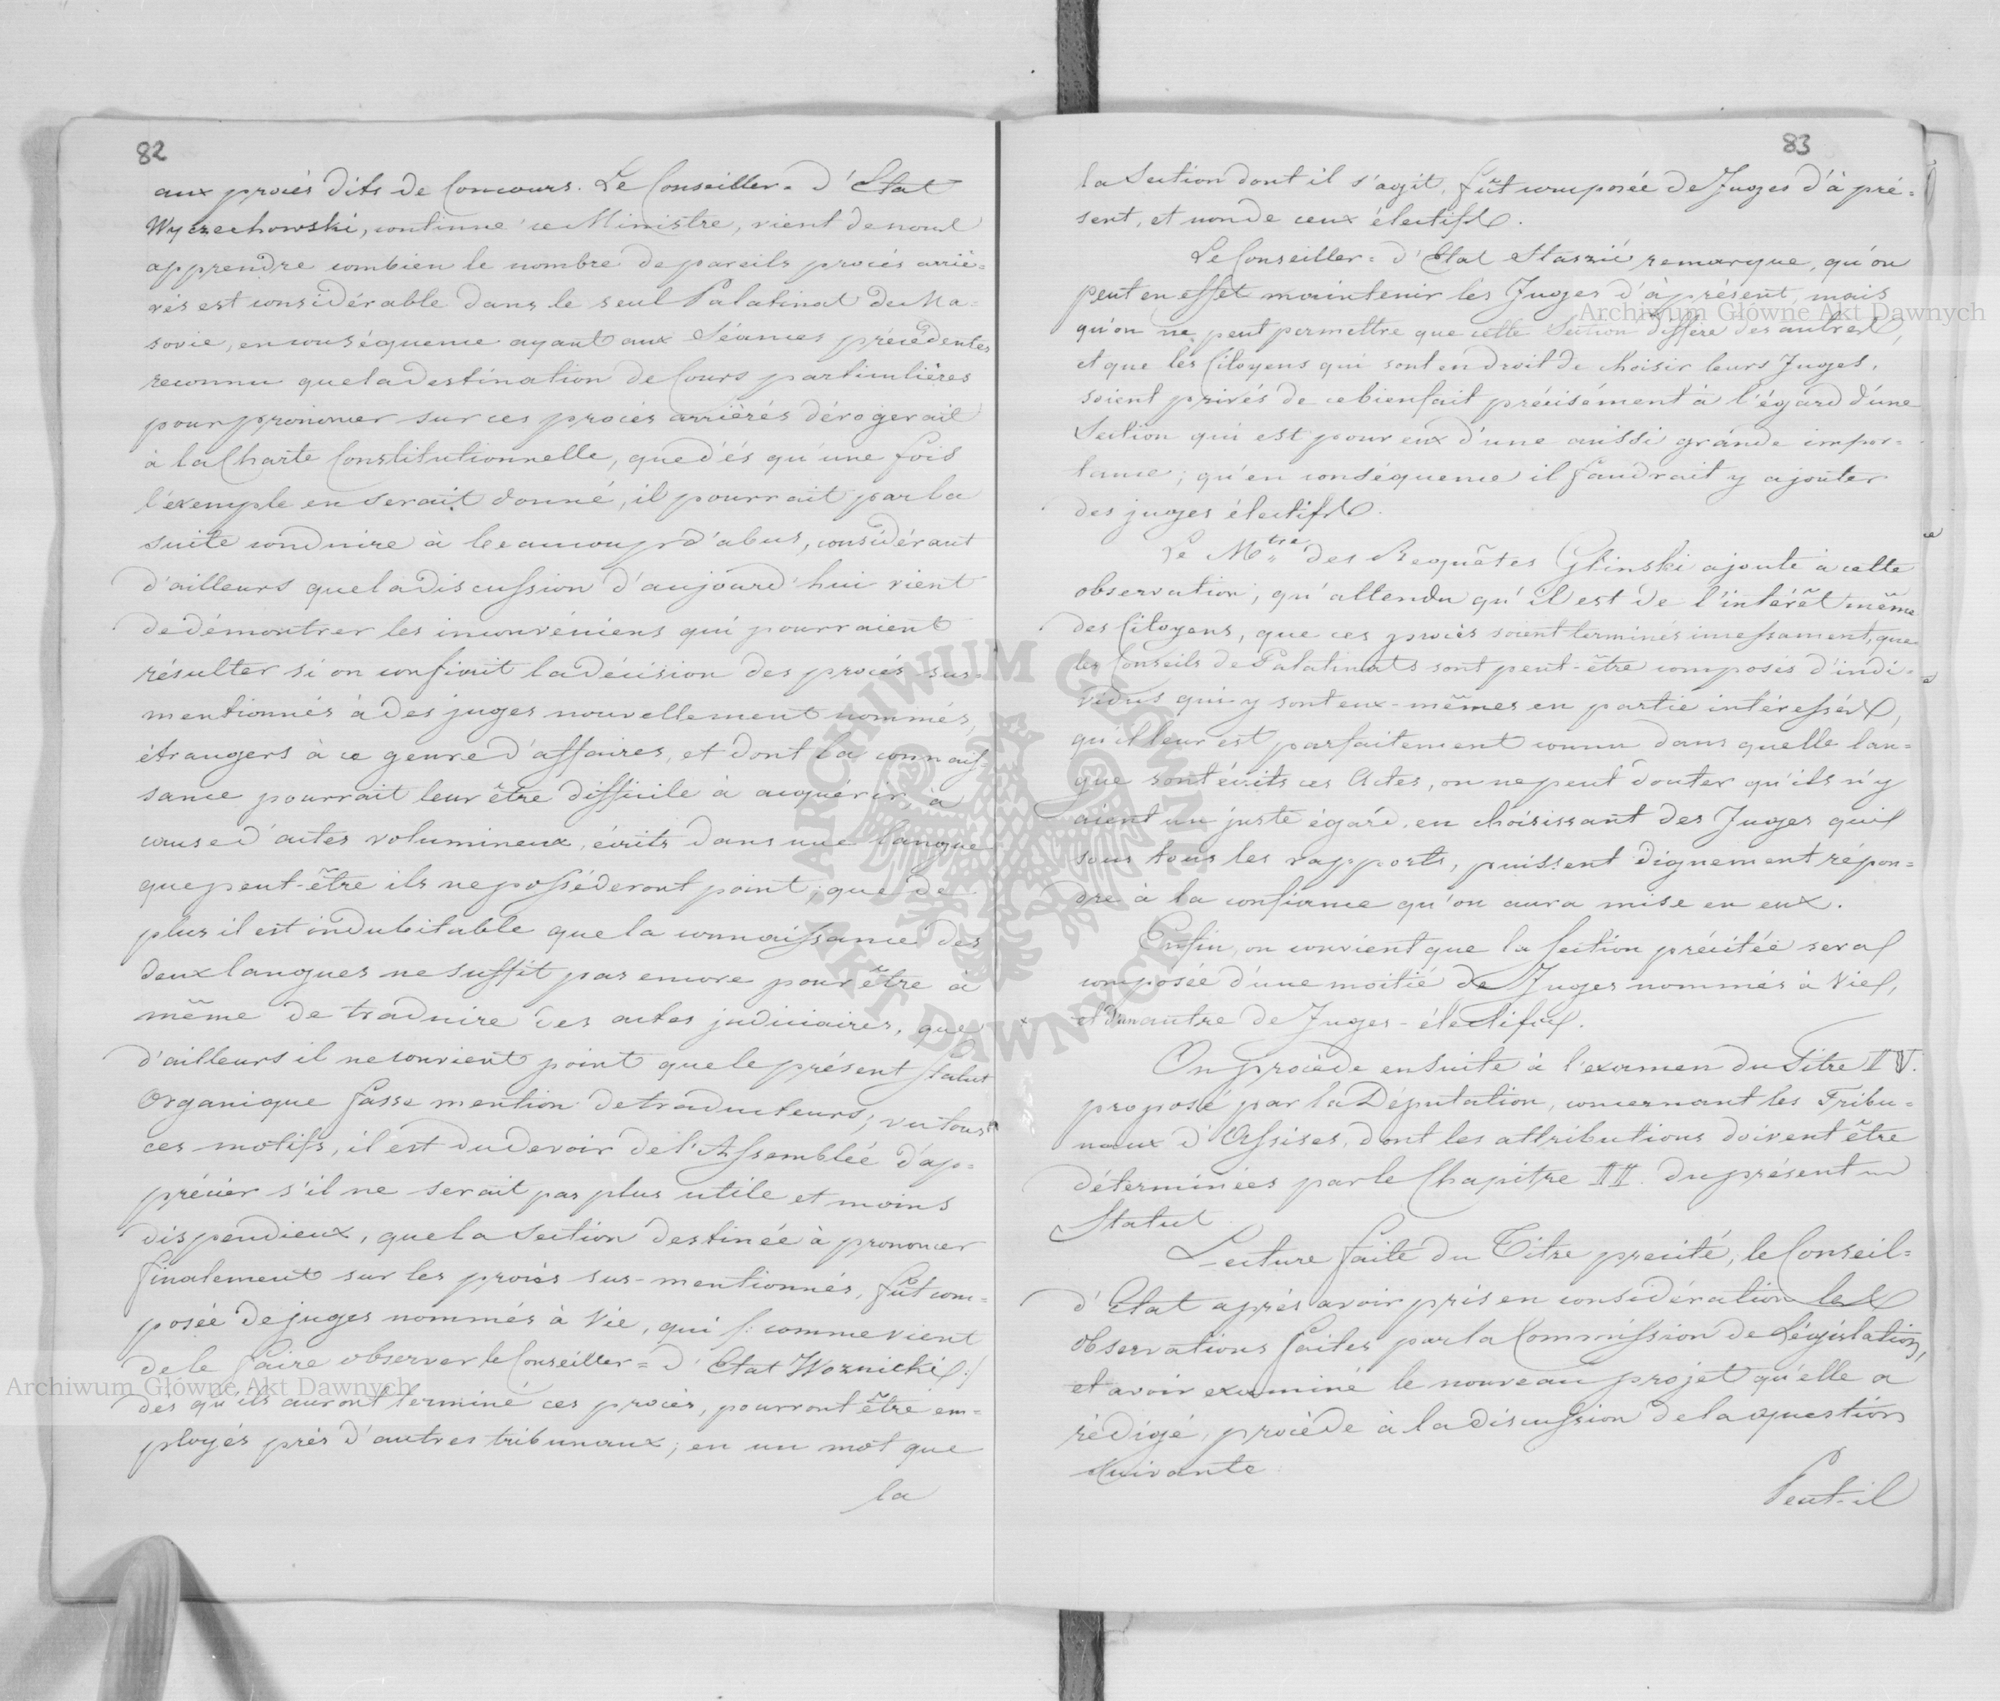 82
aux procès dits de Concours. Le Conseiller-d'Etat
Wyczechowski, continue ce Ministre, vient de nous
apprendre combien le nombre de pareils procès arrié-
rés est considérable dans le seul Palatinat de Ma-
sovie, en conséquence ayant aux Séances précédentes
reconnu que la destination de Cours particulières
pour prononcer sur ces procès arriérés dérogerait
à la Charte Constitutionnelle, que dès qu'une fois
l'exemple en serait donné, il pourrait par la
suite conduire à beaucoup d'abus, considérant
d'ailleurs que la discussion d'aujourd'hui vient
de démontrer les inconvéniens qui pourraient
résulter si on confiait la décision des procès sus-
mentionnés à des juges nouvellement nommés,
étrangers à ce genre d'affaires, et dont la connais-
sance pourrait leur être difficile à acquérir, à
cause d'actes volumineux, écrits dans une langue
que peut-être ils ne posséderont point; que de
plus il est indubitable que la connaissance des
deux langues ne suffit pas encore pour être à
même de traduire des actes judiciaires, que
d'ailleurs il ne convient point que le présent Statut
Organique fasse mention de traducteurs; vu tous
ces motifs, il est du devoir de l'Assemblée d'ap-
précier s'il ne serait pas plus utile et moins
dispendieux, que la Section destinée à prononcer
finalement sur les procès sus-mentionnés, fût com-
posée de juges nommés à Vie, qui /: comme vient
de le faire observer le Conseiller-d'Etat Woznicki :/
dès qu'ils auront terminé ces procès, pourront être em-
ployés près d'autres tribunaux; en un mot que
la
83
la Section dont il s'agit, fût composée de Juges d'à pré-
sent, et non de ceux électifs.
Le Conseiller-d'Etat Staszic remarque, qu'on
peut en effet maintenir les Juges d'à présent, mais
qu'on ne peut permettre que cette Section diffère des autres,
et que les Citoyens qui sont en droit de choisir leurs Juges,
soient privés de ce bienfait précisément à l'égard d'une
Section qui est pour eux d'une aussi grande impor-
tance; qu'en conséquence il faudrait y ajouter
des juges électifs.
Le Mtre des Requêtes Glinski ajoute à cette
observation, qu'attendu qu'il est de l'intérêt même
des Citoyens, que ces procès soient terminés incessament, que
les Conseils de Palatinats sont peut-être composés d'indi-
vidus qui y sont eux-mêmes en partie intéressés,
qu'il leur est parfaitement connu dans quelle lan-
gue sont écrits ces Actes, on ne peut douter qu'ils n'y
aient un juste égard, en choisissant des Juges qui
sous tous les rapports, puissent dignement répon-
dre à la confiance qu'on aura mise en eux.
Enfin, on convient que la Section précitée sera
composée d'une moitié de Juges nommés à Vie,
et d'une autre de Juges-électifs.
On procède ensuite à l'examen du Titre IV.
proposé par la Députation, concernant les Tribu-
naux d'Assises, dont les attributions doivent être
déterminées par le Chapitre II. du présent
Statut
Lecture faite du Titre précité, le Conseil-
d'Etat après avoir pris en considération les
Observations faites par la Commission de Législation,
et avoir examiné le nouveau projet qu'elle a
rédigé, procède à la discussion de la question
suivante
Peut-il
ARCHIWUM GŁÓWNE AKT DAWNYCH
Archiwum Główne Akt Dawnych
Archiwum Główne Akt Dawnych